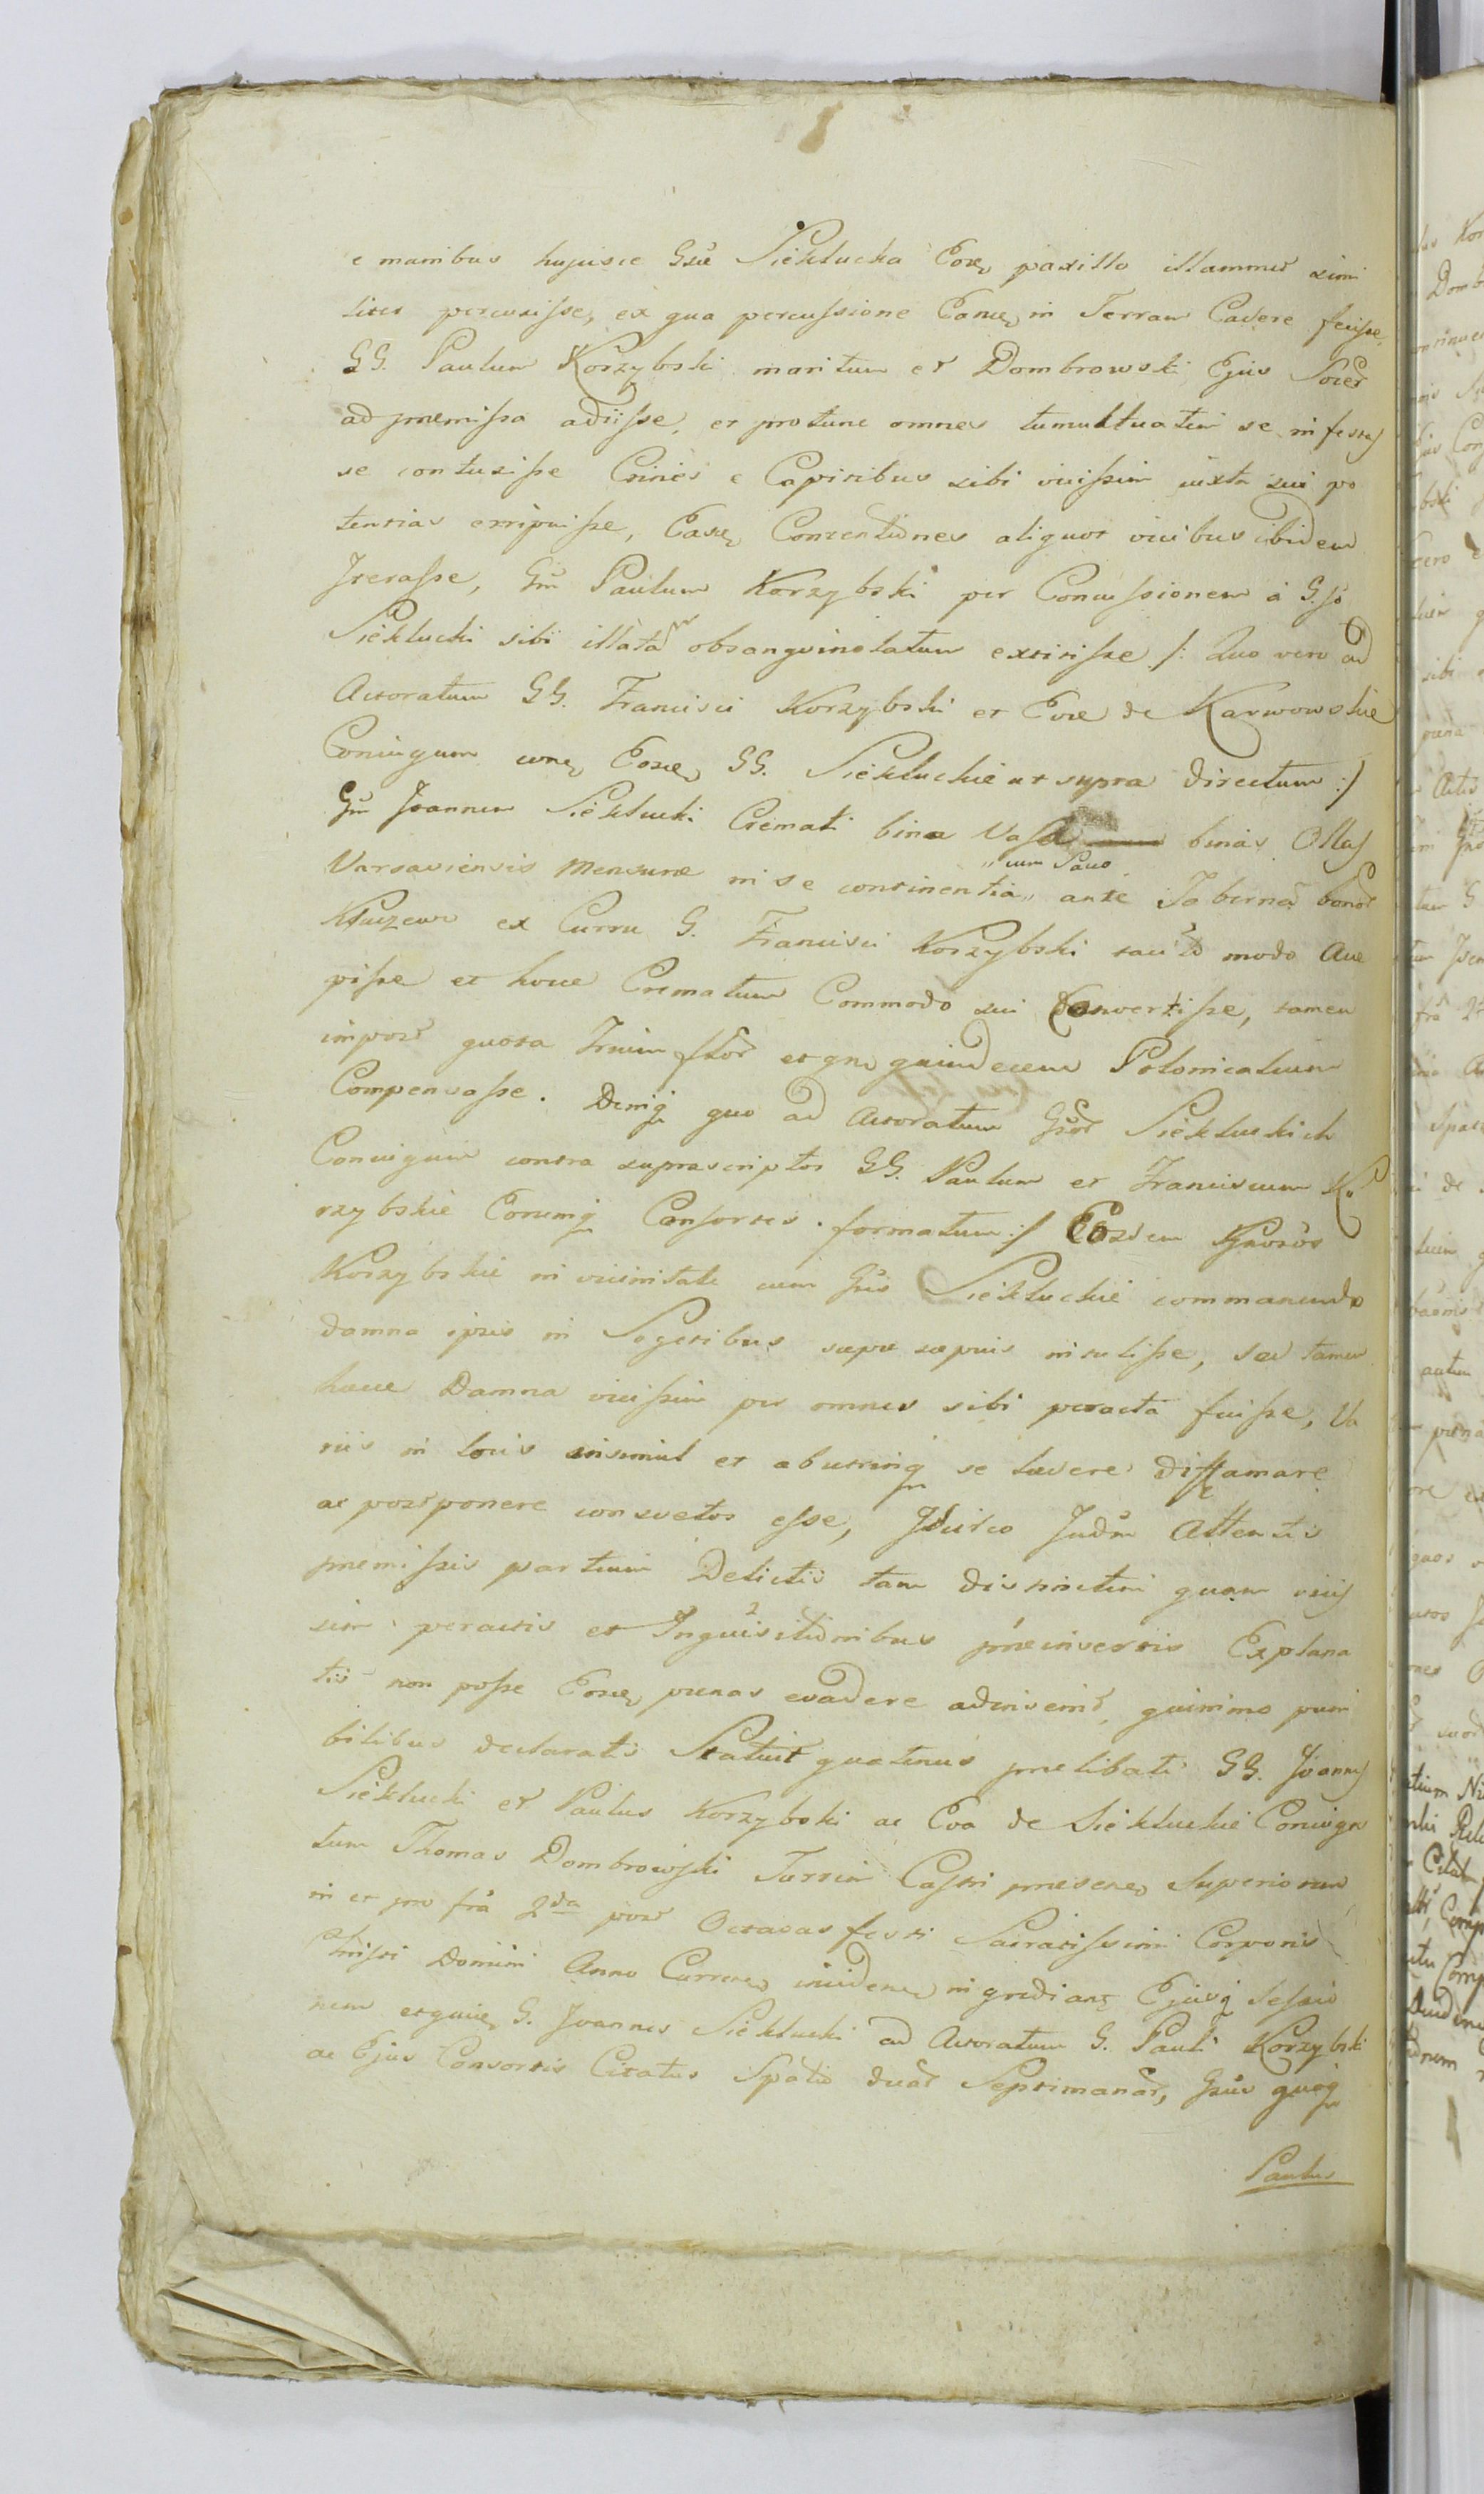 e manibus hujusce Gsæ Siekłucka Eoxq paxillo illammet simi
liter percusisse, ex qua percussione Eanq in Terram Cadere fecisse,
GG. Paulum Korzybski maritum et Dombrowski Ejus Socer
ad præmissa adiisse, et protunc omnes tumultuatim se infestas
se contusisse Crines e Capitibus sibi vicissim iuxta sui po
tentias erripuisse, Easq Contentiones aliquot vicibus ibidem
Iterasse, Gm Paulum Korzybski per Concussionem à G.so
Siekłucki sibi illatam obsangvinolatum extitisse /: Quo vero ad
Actoratum GG. Francisci Korzybski et Evæ de Karwowskie
Coniugum conq Eosq GG. Siekłuckie ut supra directum :/
Gm Joannem Siekłucki Cremati bina Vasa binas Ollas
Varsaviensis Mensuræ in se continentia „cum Sacco„ ante Tabernam bonor
Kłuczewo ex Curru G. Francisci Korzybski tacito modo Acce
pisse et hocce Crematum Commodo sui Convertisse, tamen
impost quota Trium flor et gr quindecem Polonicalium
Compensasse. Deniq quo ad Actoratum Gsor Siekłuckich
Coniugum contra suprascriptos GG. Paulum et Franciscum Ko
rzybskie Eorumq Consortes formatum :/ Eosdem Gnosos
Korzybskie in vicinitate cum Gsis Siekłuckie commanendo
damna ipsis in Segetibus sæpe sæpius intulisse, sed tamen
hæcce Damna vicissim per omnes sibi peracta fuisse, Va
riis in locis insimul et abutrinq se lædere diffamare
ac postponere consvetos esse, Idcirco Judm Attentis
præmissis partium Delictis tam distinctim quam vicis
sim peractis et Inquisitionibus præinsertis Explana
tis non posse Eosq pænas evadere adinvenit, quinimo puni
bilibus declaratis Statuit quatenus prælibati GG. Joannes
Siekłucki et Paulus Korzybski ac Eva de Siekłuckie Coniuges
tum Thomas Dombrowski Turrim Castri præsenq Superiorem
in et pro fra 2da post Octavas festi Sacratissimi Corporis
Christi Domini Anno Currenq incidenq ingrediant Ejusq Sessio
nem exquiq G. Joannes Siekłucki ad Actoratum G. Pauli Korzybski
ac Ejus Consortis Citatus Spatio duar Septimanar, Gsus quoq
Paulus